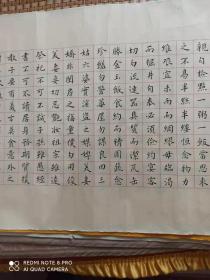 親自檢點一粥一飯當思來
之不易半絲半縷恒念物力
維艱宜未雨而綢繆毋臨渴
而掘井自奉必須儉約宴客
切勿流連器具質而潔瓦缶
勝金玉飲食約而精園蔬愈
珍饈勿營華屋勿謀良田三
姑六婆實淫盜之媒婢美妾
嬌非閨房之福童僕勿用俊
美妻妾切忌艷妝祖宗雖遠
祭祀不可不誠子孫雖愚經
書不可不讀居身務期質樸
教子要有義方莫貪意外之
REDMI NOTE 8 PRO
AI QUAD CAMERA